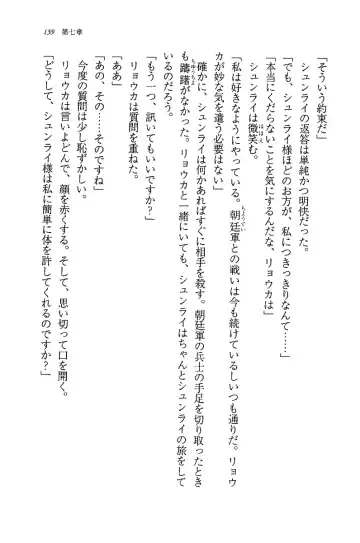 139 第七章
「そういう約束だ」
シュンライの返答は単純かつ明快だった。
「でも、シュンライ様ほどのお方が、私につきっきりなんて……」
「本当にくだらないことを気にするんだな、リョウカは」
シュンライは微笑む。
「私は好きなようにやっている。朝廷軍との戦いは今も続けているしいつも通りだ。リョウ
カが妙な気を遣う必要はない」
確かに、シュンライは何かあればすぐに相手を殺す。朝廷軍の兵士の手足を切り取ったとき
も躊躇がなかった。リョウカと一緒にいても、シュンライはちゃんとシュンライの旅をして
いるのだろう。
「もう一つ、訊いてもいいですか?」
リョウカは質問を重ねた。
「ああ」
「あの、その……そのですね」
今度の質問は少し恥ずかしい。
リョウカは言いよどんで、顔を赤くする。そして、思い切って口を開く。
「どうして、シュンライ様は私に簡単に体を許してくれるのですか?」